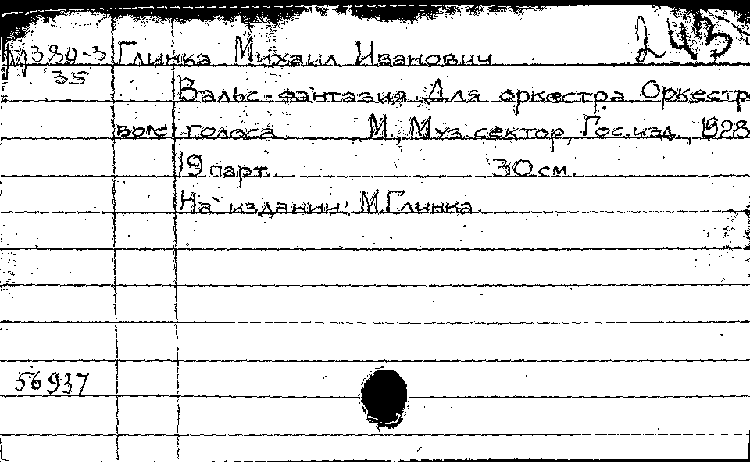 243
М380-3 Глинка Михаил Иванович
35
Вальс-фантазия. Для оркестра. Оркестр
голоса М., Муз. сектор, Гос. изд., 1928
19 парт. 30 см.
На издании: М.Глинка.
56937